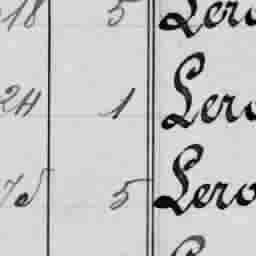 18 5 Lero
24 1 Lero
75 5 Lero